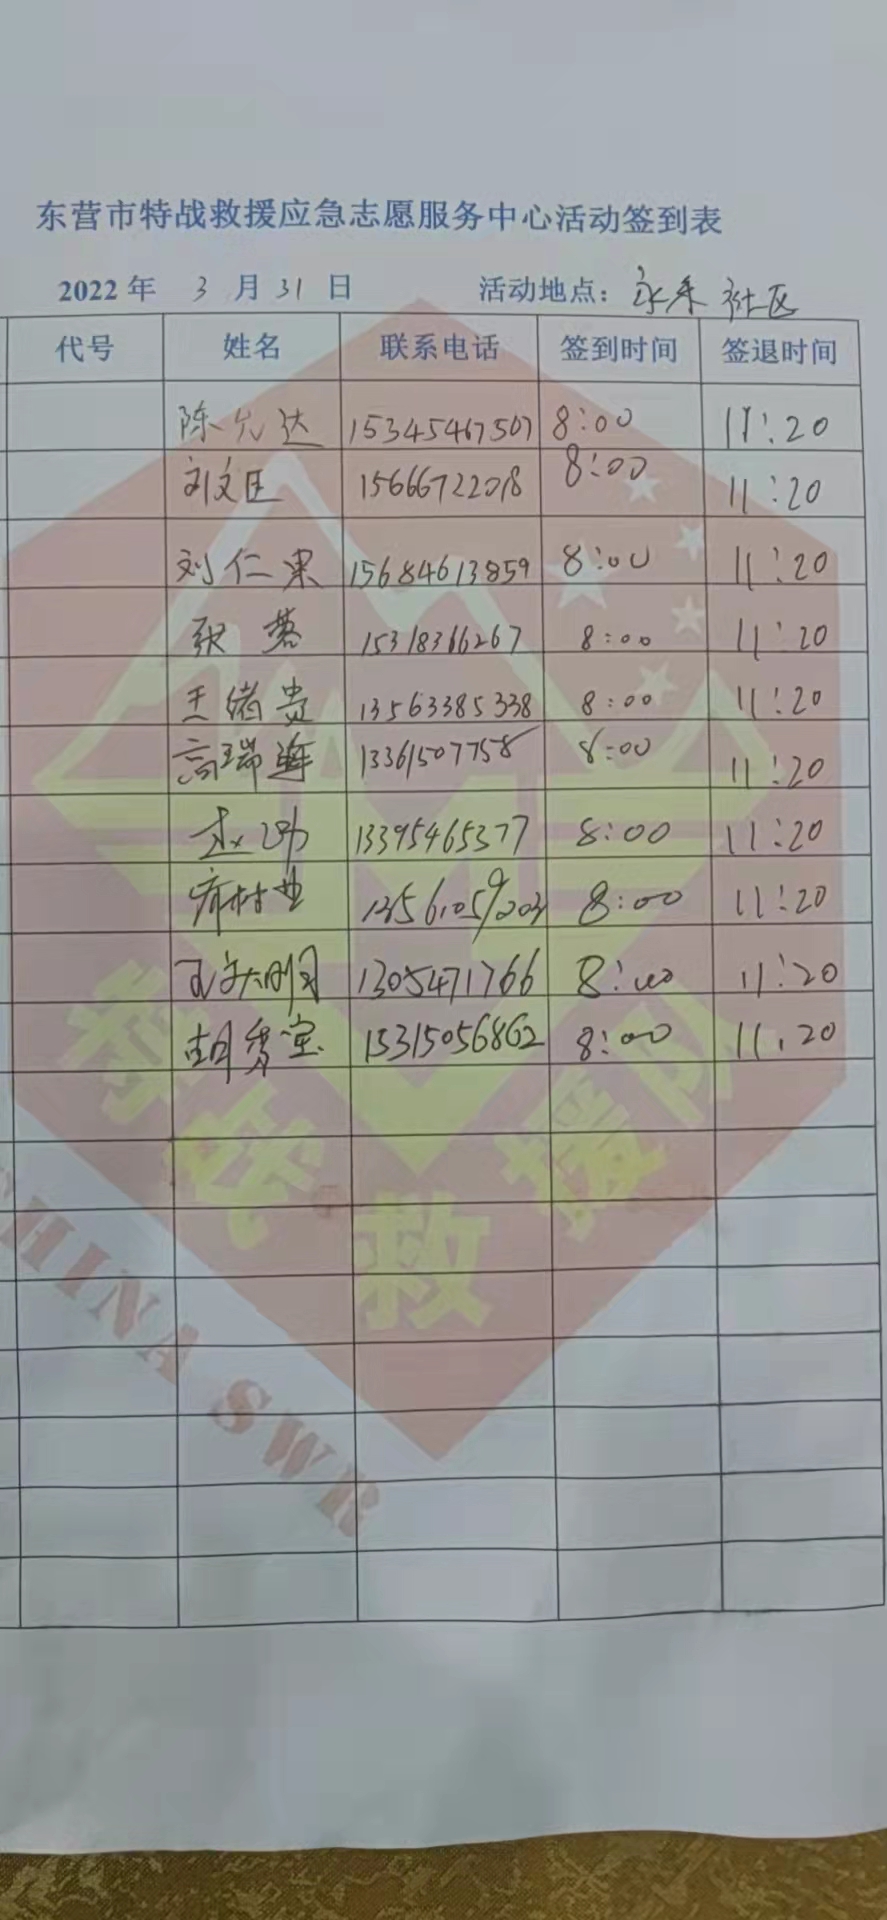 东营市特战救援应急志愿服务中心活动签到表
2022 年 3 月 31 日 活动地点： 社区
代号 姓名 联系电话 签到时间 签退时间
陈允达 15345467507 8:00 11:20
刘文臣 15666722018 8:00 11:20
刘仁果 15684613859 8:00 11:20
张蓉 15318366267 8:00 11:20
王绪贵 13563385338 8:00 11:20
高瑞莲 13361507758 8:00 11:20
13395465377 8:00 11:20
13561059203 8:00 11:20
1305471766 8:00 11:20
胡秀宝 15315056862 8:00 11:20
特战救援队
CHINA SWR